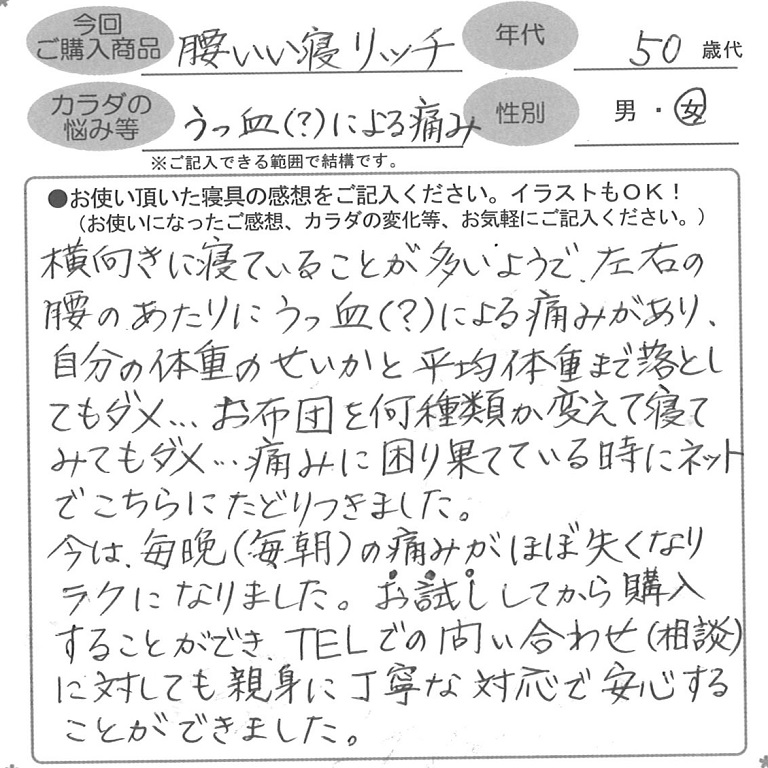 今回
ご購入商品
腰いい寝リッチ
年代
50 歳代
カラダの
悩み等
うっ血(?)による痛み
性別
男・女
※ご記入できる範囲で結構です。
●お使い頂いた寝具の感想をご記入ください。イラストもOK!
(お使いになったご感想、カラダの変化等、お気軽にご記入ください。)
横向きに寝ていることが多いようで、左右の
腰のあたりにうっ血(?)による痛みがあり、
自分の体重のせいかと平均体重まで落とし
てもダメ…お布団を何種類か変えて寝て
みてもダメ…痛みに困り果てている時にネット
でこちらにたどりつきました。
今は、毎晩(毎朝)の痛みがほぼ失くなり
ラクになりました。お試ししてから購入
することができ、TELでの問い合わせ(相談)
に対しても親身に丁寧な対応で安心する
ことができました。